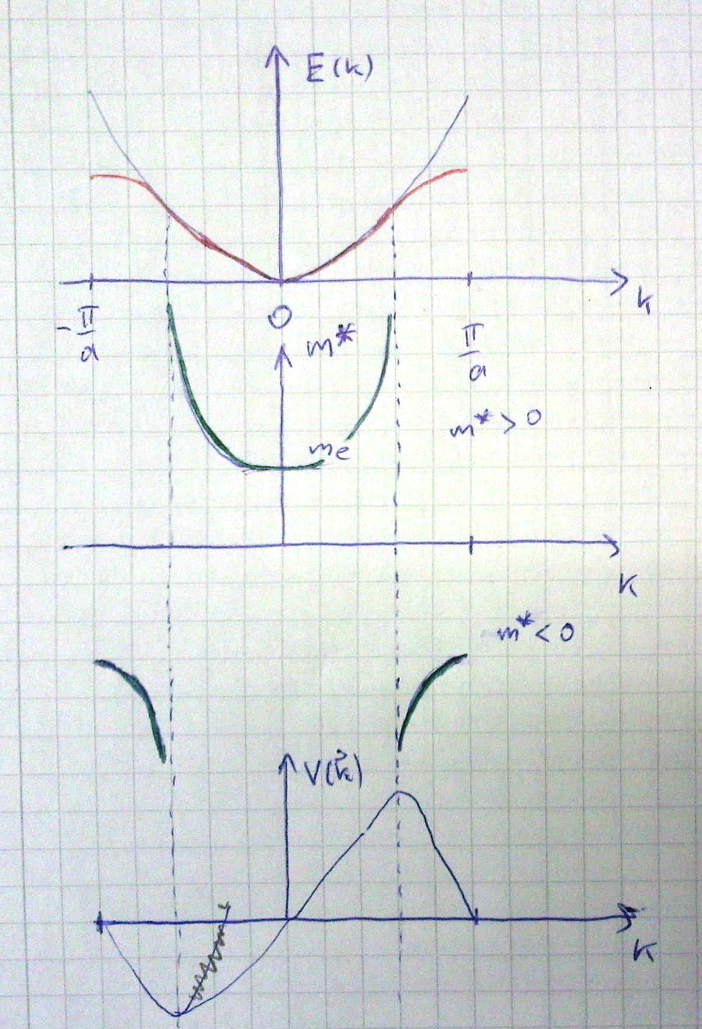 E(k)
k
-π/a
0
π/a
m*
m* > 0
me
k
m* < 0
V(k⃗)
k